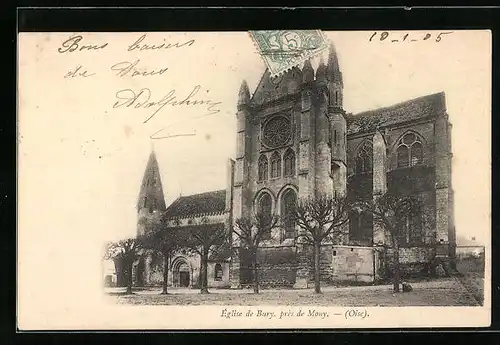 Bons baisers
de Nous
Adolphine
18-1-05
5
Église de Bury, près de Mouy. — (Oise).